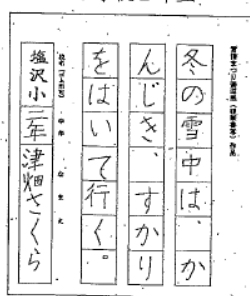 冬の雪中は、か
んじき、すかり
をはいて行く。
塩沢小二年 津畑さくら